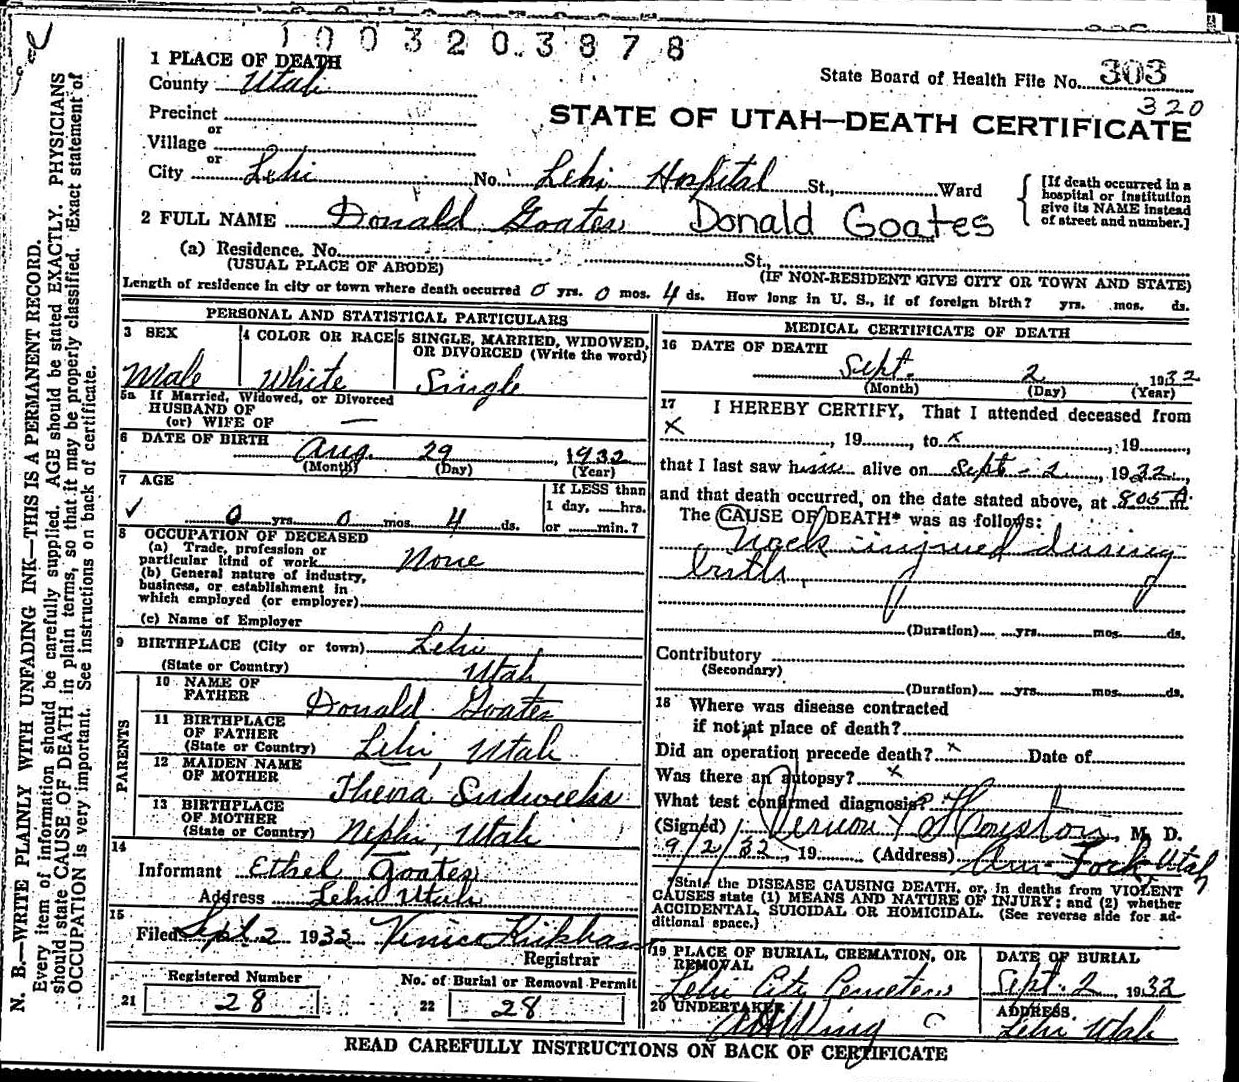 1003203878
1 PLACE OF DEATH
County Utah
State Board of Health File No. 303
320
Precinct
or
Village
or
STATE OF UTAH—DEATH CERTIFICATE
City Lehi No. Lehi Hospital St., Ward
[If death occurred in a hospital or institution give its NAME instead of street and number.]
2 FULL NAME Donald Goates Donald Goates
(a) Residence. No. St.,
(USUAL PLACE OF ABODE) (IF NON-RESIDENT GIVE CITY OR TOWN AND STATE)
Length of residence in city or town where death occurred 0 yrs. 0 mos. 4 ds. How long in U. S., if of foreign birth? yrs. mos. ds.
PERSONAL AND STATISTICAL PARTICULARS
3 SEX
Male
4 COLOR OR RACE
White
5 SINGLE, MARRIED, WIDOWED,
OR DIVORCED (Write the word)
Single
5a If Married, Widowed, or Divorced
HUSBAND OF
(or) WIFE OF —
6 DATE OF BIRTH
Aug. 29, 1932
(Month) (Day) (Year)
7 AGE
✓ 0 yrs. 0 mos. 4 ds.
If LESS than
1 day, hrs.
or min.?
8 OCCUPATION OF DECEASED
(a) Trade, profession or
particular kind of work None
(b) General nature of industry,
business, or establishment in
which employed (or employer)
(c) Name of Employer
9 BIRTHPLACE (City or town) Lehi
(State or Country) Utah
PARENTS
10 NAME OF
FATHER Donald Goates
11 BIRTHPLACE
OF FATHER
(State or Country) Lehi, Utah
12 MAIDEN NAME
OF MOTHER
Thevia Sudweeks
13 BIRTHPLACE
OF MOTHER
(State or Country) Nephi, Utah
14
Informant Ethel Goates
Address Lehi Utah
15
Filed Sept 2 1932 Venice Kirkham
Registrar
Registered Number
21 28
No. of Burial or Removal Permit
22 28
MEDICAL CERTIFICATE OF DEATH
16 DATE OF DEATH
Sept. 2 1932
(Month) (Day) (Year)
17 I HEREBY CERTIFY, That I attended deceased from
x, 19, to x, 19,
that I last saw him alive on Sept - 2, 1932,
and that death occurred, on the date stated above, at 805 A.
The CAUSE OF DEATH* was as follows:
Neck injured during
birth.
(Duration) yrs. mos. ds.
Contributory
(Secondary)
(Duration) yrs. mos. ds.
18 Where was disease contracted
if not at place of death?
Did an operation precede death? x Date of
Was there an autopsy? x
What test confirmed diagnosis?
(Signed) Vernon F Houston M. D.
9/2/32, 19 (Address) Am. Fork Utah
*State the DISEASE CAUSING DEATH, or, in deaths from VIOLENT
CAUSES state (1) MEANS AND NATURE OF INJURY; and (2) whether
ACCIDENTAL, SUICIDAL OR HOMICIDAL. (See reverse side for ad-
ditional space.)
19 PLACE OF BURIAL, CREMATION, OR
REMOVAL
Lehi City Cemetery
DATE OF BURIAL
Sept. 2 1932
20 UNDERTAKER
Wing
ADDRESS
Lehi Utah
READ CAREFULLY INSTRUCTIONS ON BACK OF CERTIFICATE
N. B.—WRITE PLAINLY WITH UNFADING INK—THIS IS A PERMANENT RECORD.
Every item of information should be carefully supplied. AGE should be stated EXACTLY. PHYSICIANS
should state CAUSE OF DEATH in plain terms, so that it may be properly classified. Exact statement of
OCCUPATION is very important. See instructions on back of certificate.